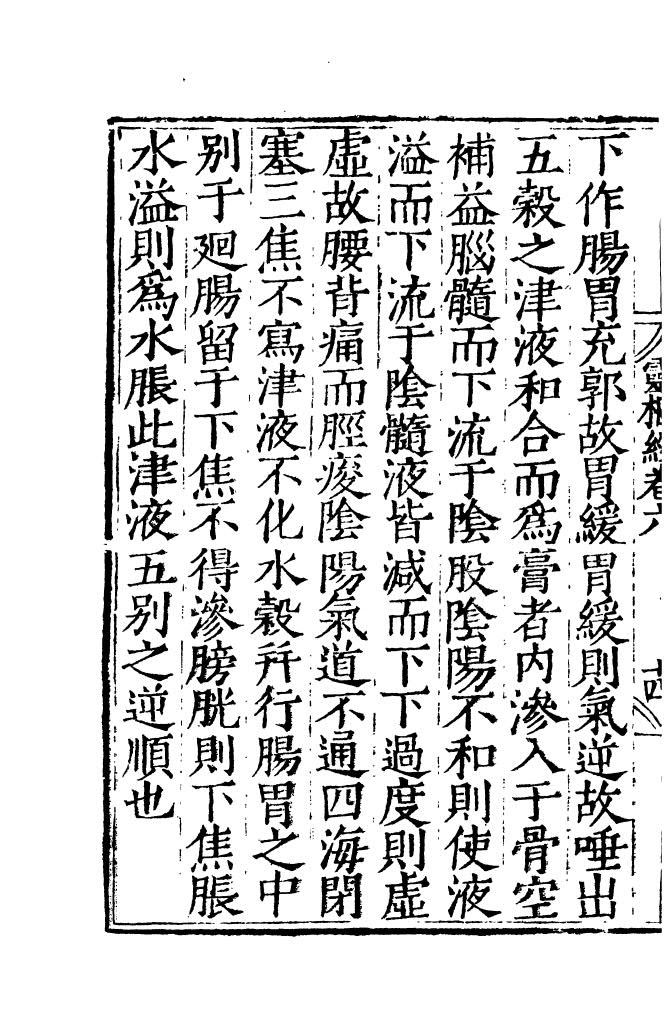 靈樞經卷六
十四
下作腸胃充郭故胃緩胃緩則氣逆故唾出
五穀之津液和合而爲膏者內滲入于骨空
補益腦髓而下流于陰股陰陽不和則使液
溢而下流于陰髓液皆減而下下過度則虛
虛故腰背痛而脛痠陰陽氣道不通四海閉
塞三焦不寫津液不化水穀并行腸胃之中
别于廻腸留于下焦不得滲膀胱則下焦脹
水溢則爲水脹此津液五别之逆順也